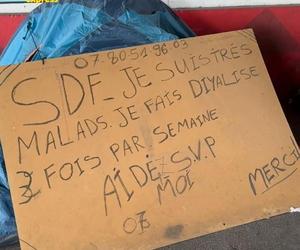 express
07.80.51.96.03
SDF_JE SUIS TRÉS
MALADS. JE FAIS DIYALISE
3 FOIS PAR SEMAINE
AÏDÉ S.V.P
MOI
MERCI
07